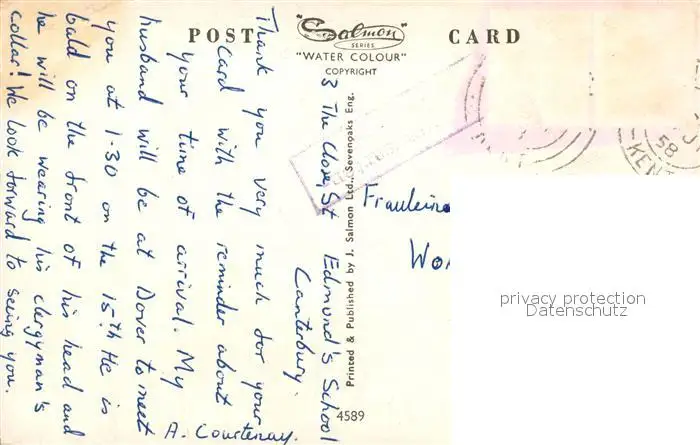 POST CARD
"Salmon"
SERIES
"WATER COLOUR"
COPYRIGHT
3 The Close, St Edmund's School
Canterbury.
Thank you very much for your
card with the reminder about
your time of arrival. My
husband will be at Dover to meet
you at 1-30 on the 15th He is
bald on the front of his head and
he will be wearing his clergyman's
collar! We look forward to seeing you.
A. Courtenay.
Printed & Published by J. Salmon Ltd., Sevenoaks Eng.
4589
Fraulein
58
KENT
privacy protection
Datenschutz